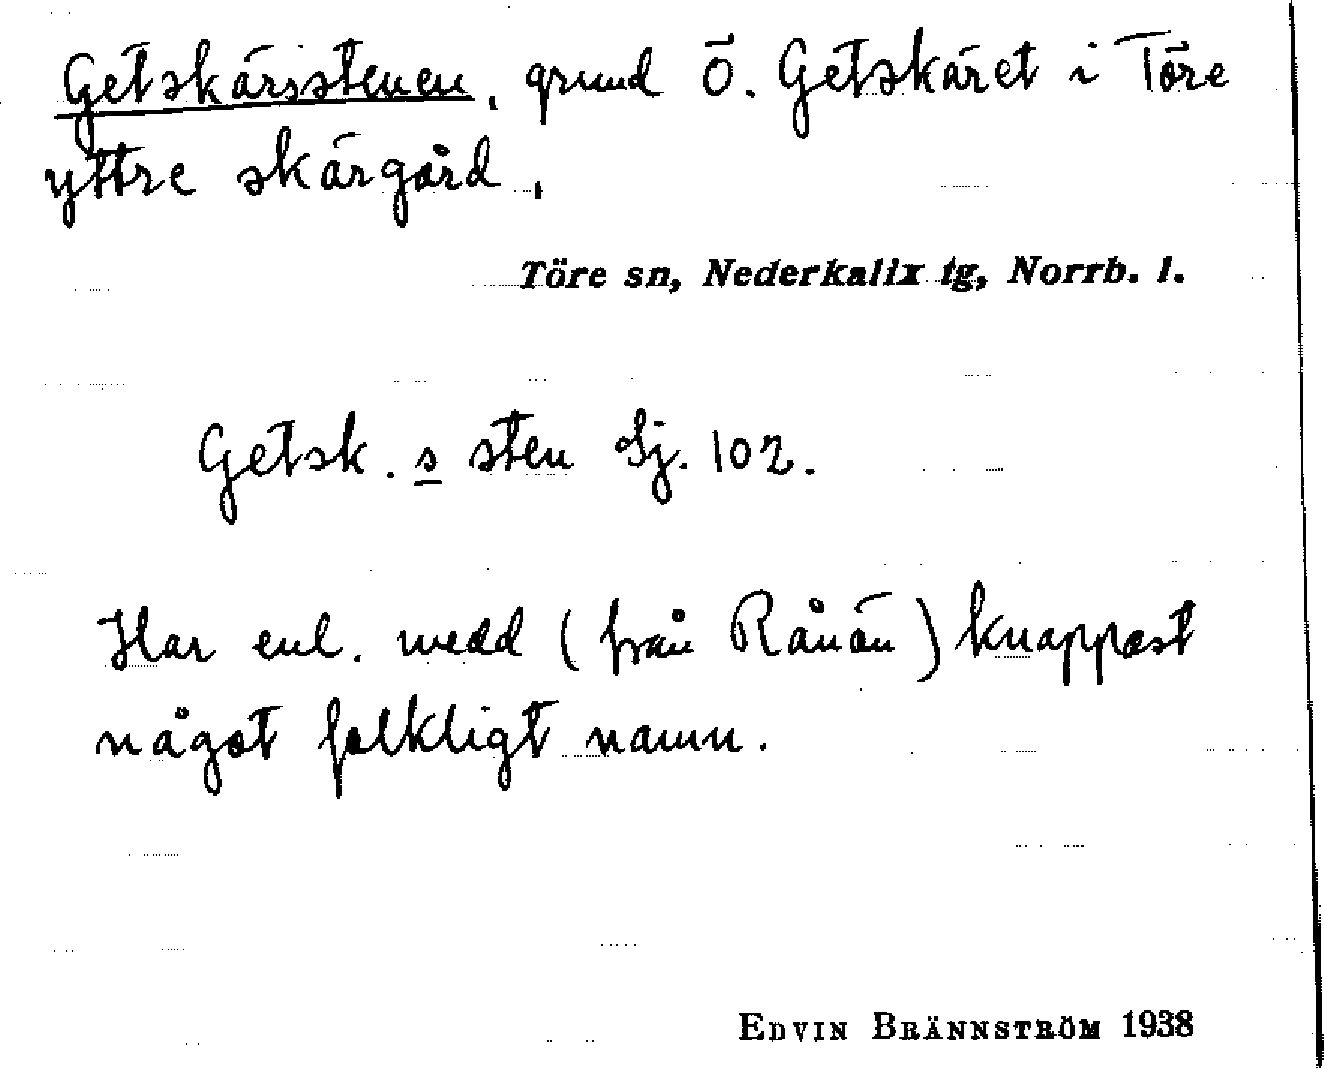 Getskärsstenen, grund Ö. Getskäret i Töre
yttre skärgård,
Töre sn, Nederkalix tg, Norrb. l.
Getsk. s sten Sj. 102.
Har enl. medd (från Rånön) knappast
något folkligt namn.
EDVIN BRÄNNSTRÖM 1938